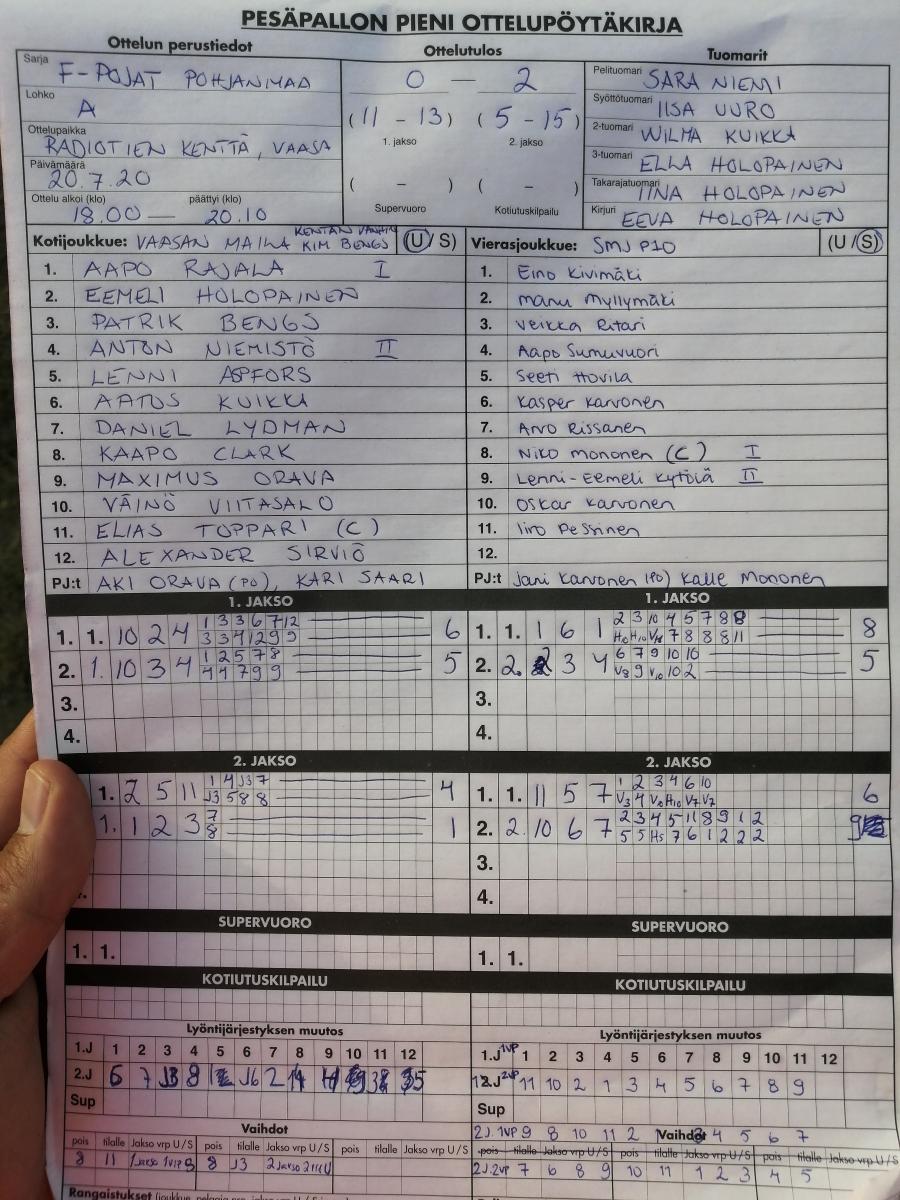 PESÄPALLON PIENI OTTELUPÖYTÄKIRJA
Ottelun perustiedot
Sarja F-POJAT POHJANMAA
Lohko A
Ottelupaikka RADIOTIEN KENTTÄ, VAASA
Päivämäärä 20.7.20
Ottelu alkoi (klo) päättyi (klo)
18.00 — 20.10
Ottelutulos
0 — 2
(11 - 13) (5 - 15)
1. jakso 2. jakso
( - ) ( - )
Supervuoro Kotiutuskilpailu
Tuomarit
Pelituomari SARA NIEMI
Syöttötuomari IISA UURO
2-tuomari WILMA KUIKKA
3-tuomari ELLA HOLOPAINEN
Takarajatuomari IINA HOLOPAINEN
Kirjuri EEVA HOLOPAINEN
Kotijoukkue: VAASAN MAILA KENTÄN VANHIN KIM BENGS (U/S)
1. AAPO RAJALA I
2. EEMELI HOLOPAINEN
3. PATRIK BENGS
4. ANTON NIEMISTÖ II
5. LENNI ASPFORS
6. AATOS KUIKKA
7. DANIEL LYDMAN
8. KAAPO CLARK
9. MAXIMUS ORAVA
10. VÄINÖ VIITASALO
11. ELIAS TOPPARI (C)
12. ALEXANDER SIRVIÖ
PJ:t AKI ORAVA (PO), KARI SAARI
Vierasjoukkue: SMJ P10 (U/S)
1. Eino Kivimäki
2. Manu Myllymäki
3. Veikka Ritari
4. Aapo Sumuvuori
5. Seeti Hovila
6. Kasper Karvonen
7. Arvo Rissanen
8. Niko Mononen (C) I
9. Lenni-Eemeli Kytölä II
10. Oskar Karvonen
11. Iiro Pessinen
12.
PJ:t Jani Karvonen (PO) Kalle Mononen
1. JAKSO
1. 1. 10 2 4 1 3 3 6 7 12 6
3 3 4 12 9 9
2. 1. 10 3 4 1 2 5 7 8 5
4 4 7 9 9
3.
4.
1. JAKSO
1. 1. 1 6 1 2 3 10 4 5 7 8 8 8
H10 V8 7 8 8 8 11
2. 2. 2 3 4 6 7 9 10 10 5
V8 9 V10 10 2
3.
4.
2. JAKSO
1. 2 5 11 1 4 J3 7 4
J3 5 8 8
1. 1 2 3 7 1
8
2. JAKSO
1. 1. 11 5 7 1 2 3 4 6 10 6
V3 4 H10 V7 V7
2. 2. 10 6 7 2 3 4 5 11 8 9 1 2 9
5 5 H5 7 6 1 2 2 2
3.
4.
SUPERVUORO
1. 1.
SUPERVUORO
1. 1.
KOTIUTUSKILPAILU
KOTIUTUSKILPAILU
Lyöntijärjestyksen muutos
1.J 1 2 3 4 5 6 7 8 9 10 11 12
2.J 6 7 J3 8 J6 2
Sup
Lyöntijärjestyksen muutos
1.J 1VP 1 2 3 4 5 6 7 8 9 10 11 12
2.J 2VP 11 10 2 1 3 4 5 6 7 8 9
Sup
Vaihdot
pois tilalle Jakso vrp U/S pois tilalle Jakso vrp U/S pois tilalle Jakso vrp U/S
8 11 1 Jakso 1VP S 8 J3 2 Jakso
2J. 1VP 9 8 10 11 2 1 3 4 5 6 7
Vaihdot
pois tilalle Jakso vrp U/S pois tilalle Jakso vrp U/S pois tilalle Jakso vrp U/S
2J. 2VP 7 6 8 9 10 11 1 2 3 4 5